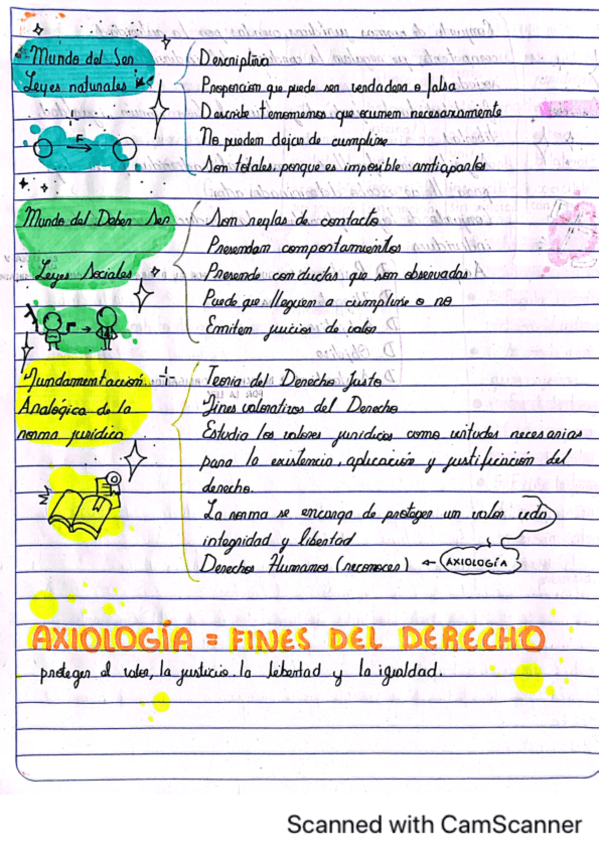 Mundo del Ser
Leyes naturales
Descriptiva
Proposición que puede ser verdadera o falsa
Describe fenomemos que ocurren necesariamente
No pueden dejar de cumplirse
Son totales, porque es imposible antiaparlos
Mundo del Deber Ser
Leyes Sociales
Son reglas de contacto
Presendam comportamientos
Presende conductas que son observadas
Puede que lleguen a cumplirse o no
Emiten juicios de valor
Fundamentación
Analógica de la
norma jurídica
Teoria del Derecho Justo
Fines valorativos del Derecho
Estudia los valores juridicos como virtudes necesarias
para la existencia, aplicación y justificación del
derecho.
La norma se encarga de proteger un valor vida
integridad y libertad
Derechos Humanos (reconocer) ← AXIOLOGÍA
AXIOLOGÍA = FINES DEL DERECHO
proteger el valor, la justicia. la libertad y la igualdad.
Scanned with CamScanner